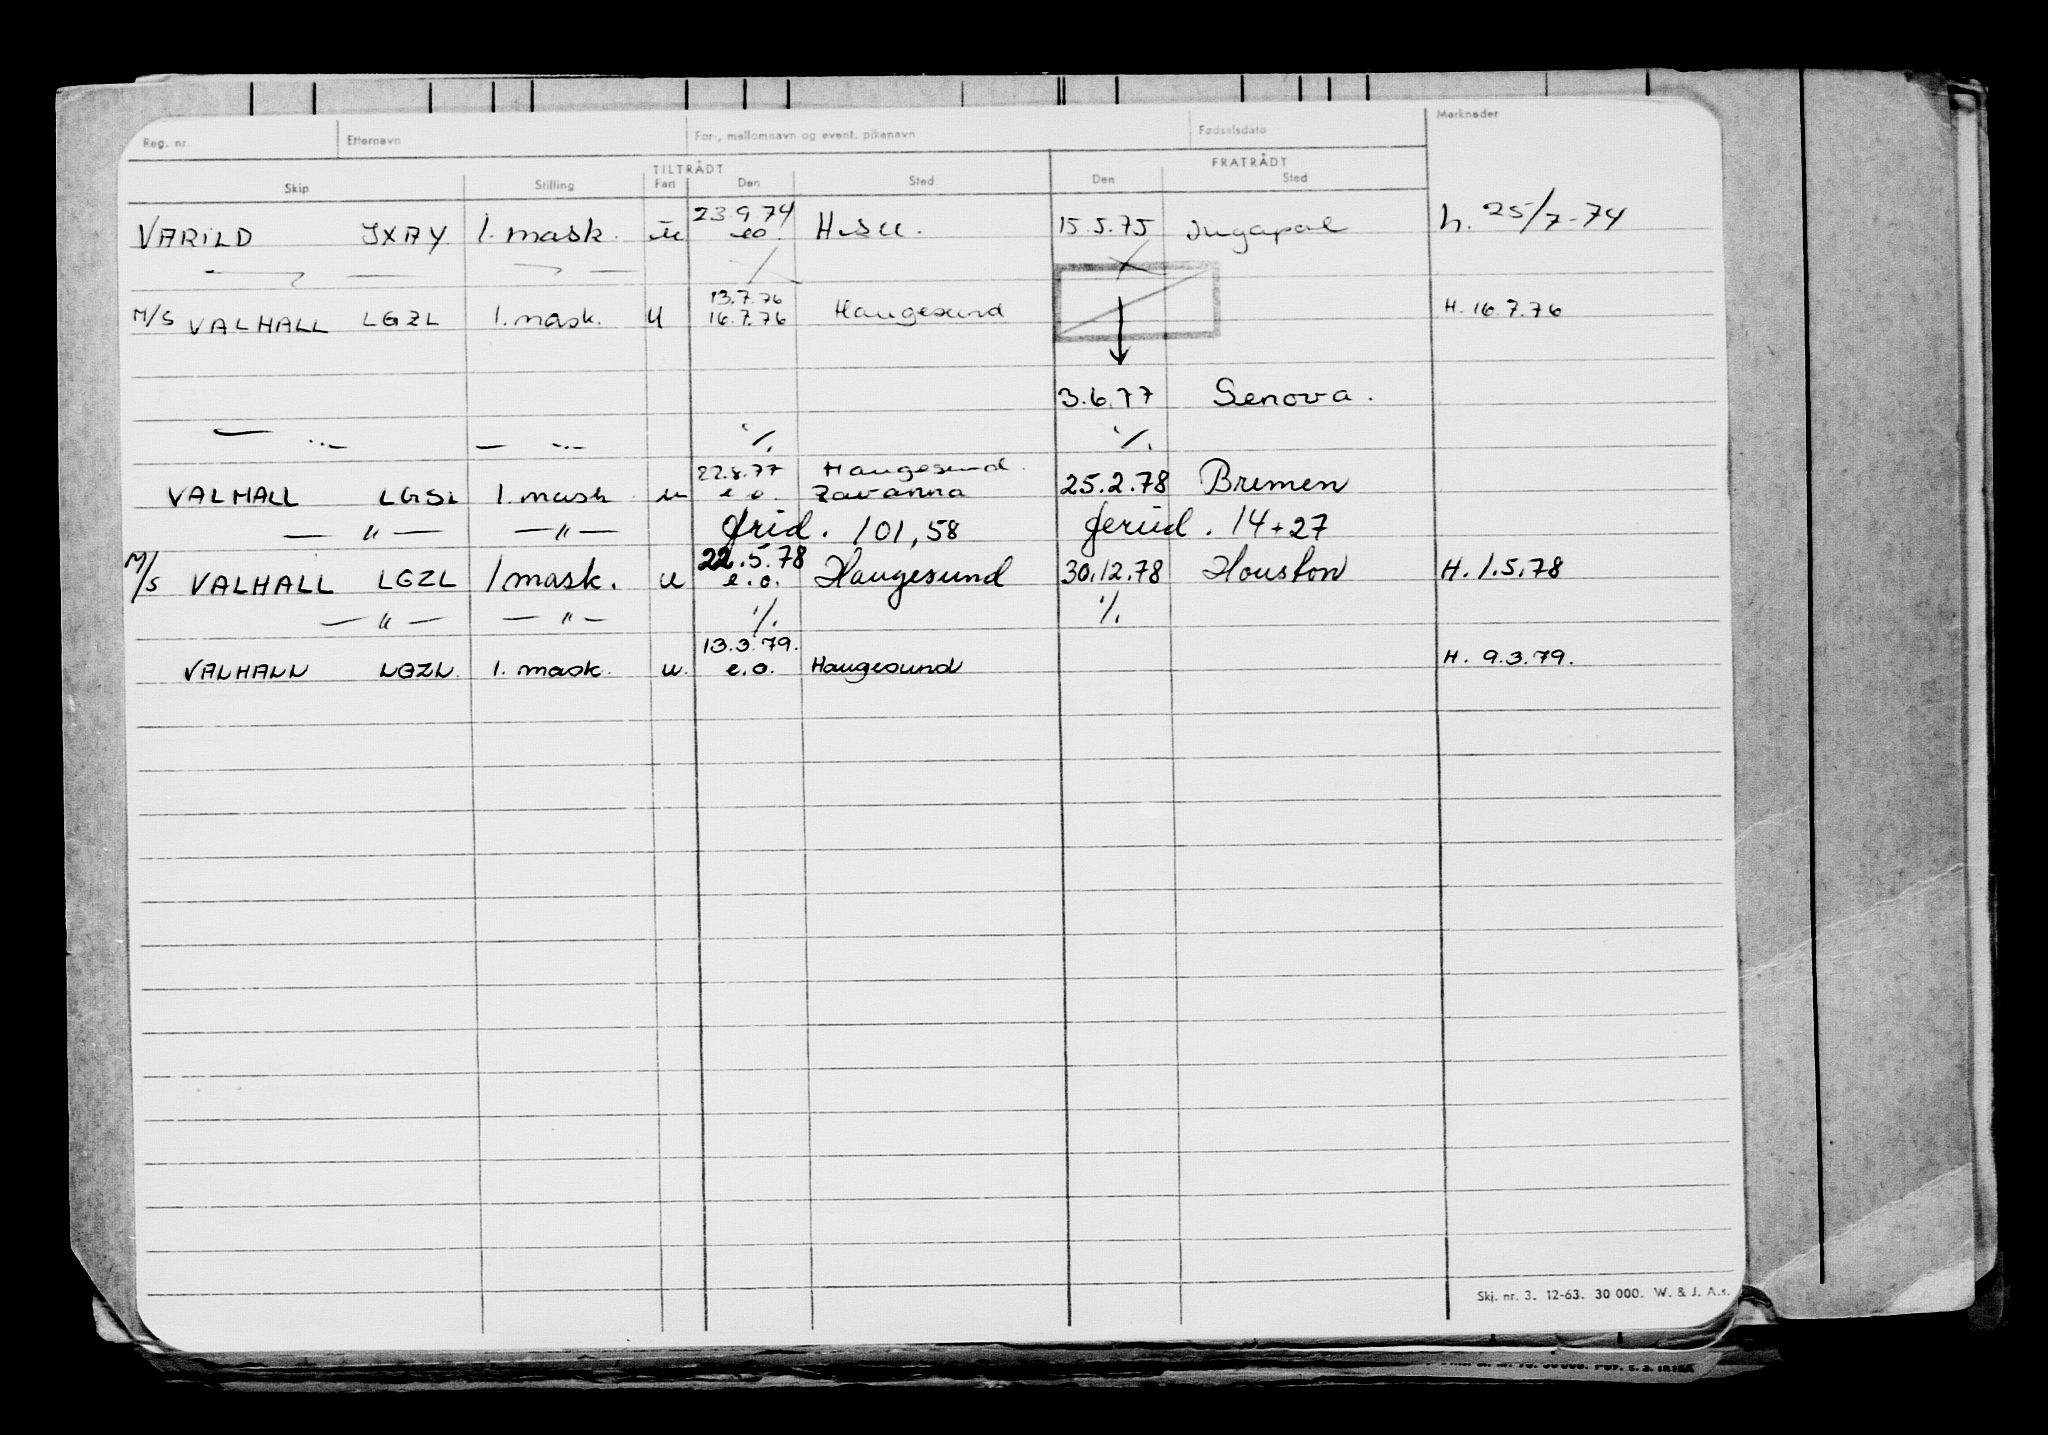 Reg. nr. Etternavn For-, mellomnavn og event. pikenavn Fødselsdato Merknader
TILTRÅDT FRATRÅDT
Skip Stilling Fart Den Sted Den Sted
23.9.74
VARILD JXAY 1. mask. u e.o. H.su. 15.5.75 h. 25/7-74
13.7.76
M/S VALHALL LGZL 1. mask. u 16.7.76 Haugesund H. 16.7.76
3.6.77 Genova.
— " — — " — ./. ./.
22.8.77 Haugesund.
VALHALL LGSL 1. mask. u e.o. Zavanna 25.2.78 Bremen
— " — — " — frid. 101,58 feriid. 14+27
22.5.78
M/S VALHALL LGZL 1 mask. u e.o. Haugesund 30.12.78 Houston H. 1.5.78
— " — — " — ./. ./.
13.3.79.
VALHALL LGZL 1. mask. u. e.o. Haugesund H. 9.3.79.
Skj. nr. 3. 12-63. 30 000. W. & J. A.s.